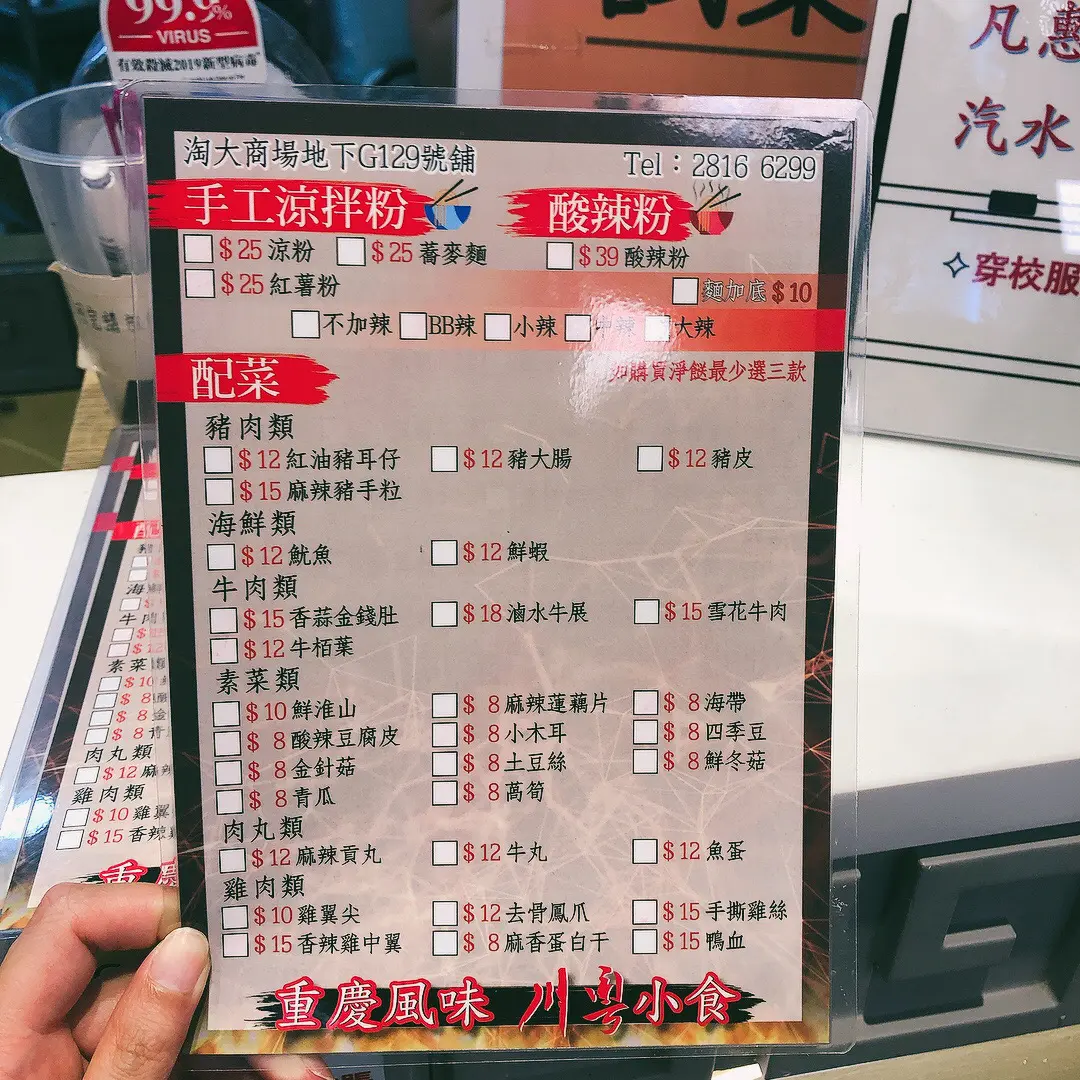 99.9%
VIRUS
有效殺滅2019新型病毒
凡惠
汽水
穿校服
淘大商場地下G129號舖 Tel：2816 6299
手工涼拌粉 酸辣粉
$25 涼粉 $25 蕎麥麵 $39 酸辣粉
$25 紅薯粉 麵加底 $10
不加辣 BB辣 小辣 中辣 大辣
配菜 購買淨餸最少選三款
豬肉類
$12 紅油豬耳仔 $12 豬大腸 $12 豬皮
$15 麻辣豬手粒
海鮮類
$12 魷魚 $12 鮮蝦
牛肉類
$15 香蒜金錢肚 $18 滷水牛展 $15 雪花牛肉
$12 牛栢葉
素菜類
$10 鮮淮山 $ 8 麻辣蓮藕片 $ 8 海帶
$ 8 酸辣豆腐皮 $ 8 小木耳 $ 8 四季豆
$ 8 金針菇 $ 8 土豆絲 $ 8 鮮冬菇
$ 8 青瓜 $ 8 萵筍
肉丸類
$12 麻辣貢丸 $12 牛丸 $12 魚蛋
雞肉類
$10 雞翼尖 $12 去骨鳳爪 $15 手撕雞絲
$15 香辣雞中翼 $ 8 麻香蛋白干 $15 鴨血
重慶風味 川粵小食
素菜類
$10
$ 8
$ 8 金
$ 8 青
肉丸類
$12 麻辣
雞肉類
$10 雞翼
$15 香辣
重慶